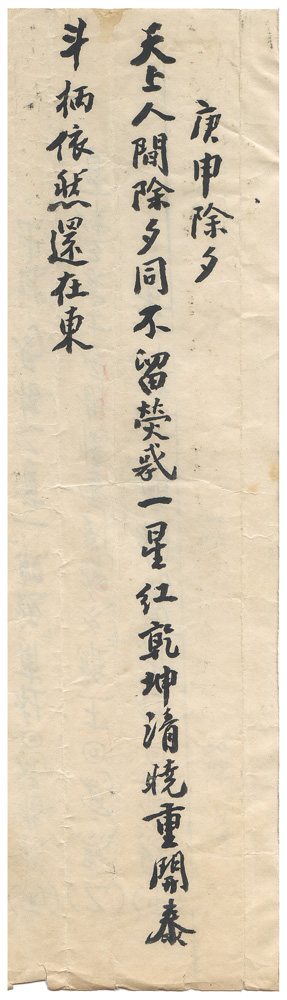 庚申除夕
天上人間除夕同不留熒惑一星紅乾坤清曉重開泰
斗柄依然還在東